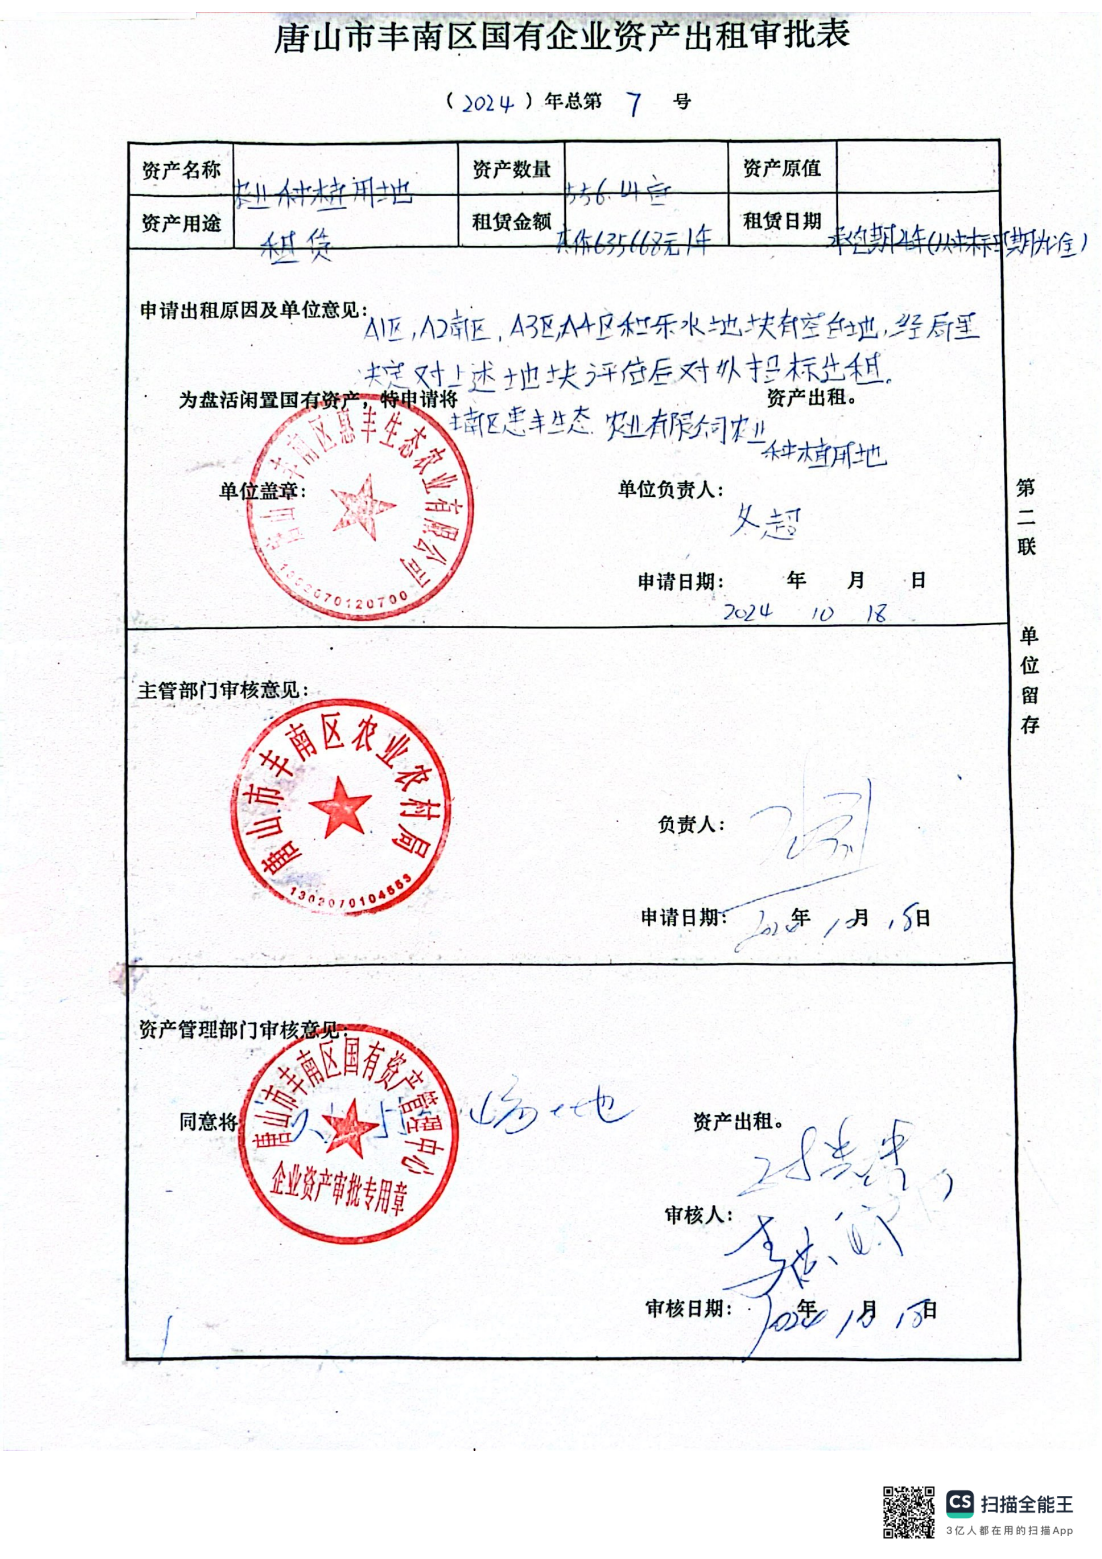 唐山市丰南区国有企业资产出租审批表
（2024）年总第 7 号
资产名称 农业种植用地 资产数量 556.14亩 资产原值
资产用途 租赁 租赁金额 635668元/年 租赁日期 承包期 年(以中标日期为准)
申请出租原因及单位意见：
A1区,A2南区,A3区,A4区和乐水地块有空台地,经局里
决定对上述地块评估后对外招标出租.
为盘活闲置国有资产，特申请将 丰南区惠丰生态农业有限公司农业种植用地 资产出租。
单位盖章：
唐山市丰南区惠丰生态农业有限公司
1302070120700
单位负责人：
冬超
申请日期： 2024 年 10 月 18 日
第二联 单位留存
主管部门审核意见：
唐山市丰南区农业农村局
1302070104553
负责人：
申请日期： 2024 年 10 月 18 日
资产管理部门审核意见：
唐山市丰南区国有资产管理中心
企业资产审批专用章
同意将 场地 资产出租。
审核人：
审核日期： 2024 年 10 月 18 日
CS 扫描全能王
3亿人都在用的扫描App